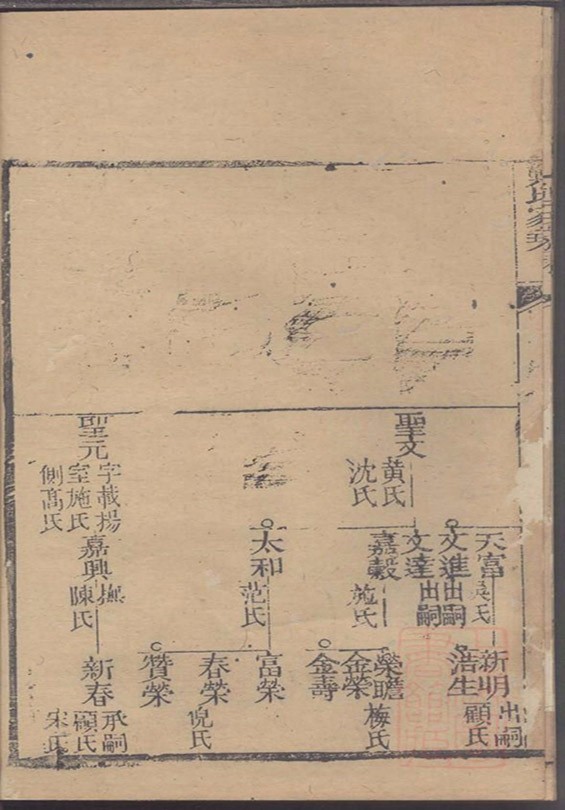 聖文
黄氏
沈氏
聖元
字載揚
室施氏
側高氏
天富
吳氏
文進出嗣
文達出嗣
嘉穀
施氏
太和
范氏
嘉興撫
陳氏
新明出嗣
浩生
顧氏
榮瞻
梅氏
金榮
金壽
富榮
春榮
倪氏
贊榮
新春
承嗣
顧氏
宋氏